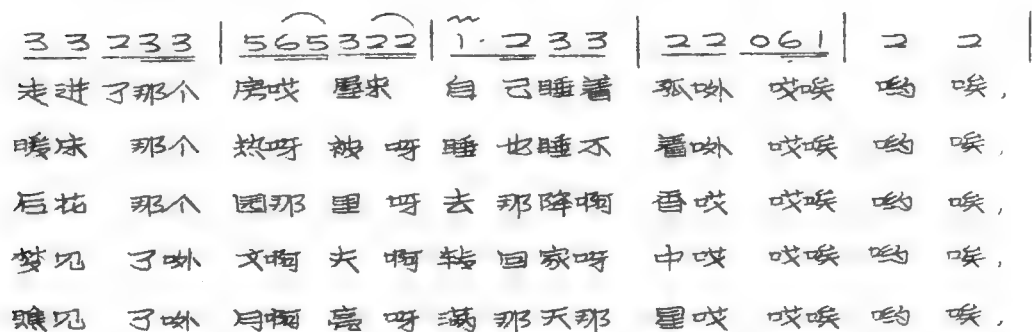 3 3 2 3 3 | 5 6 5 3 2 2 | 1· 2 3 3 | 2 2 0 6 1 | 2 2 |
走进 了那个 房哎 屋来 自己睡着 孤呦 哎唉 哟 唉,
暖床 那个 热呀 被 呀 睡也睡不 着呦 哎唉 哟 唉,
后花 那个 园那 里 呀 去那降啊 香哎 哎唉 哟 唉,
梦见 了呦 文啊 夫 啊 转回家呀 中哎 哎唉 哟 唉,
瞧见 了呦 月啊 亮 呀 满那天那 星哎 哎唉 哟 唉,